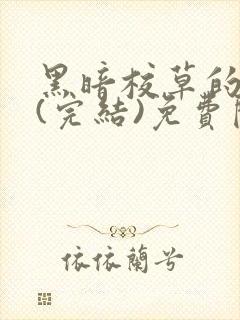 黑暗校草的
(完結)免費
依依蘭兮